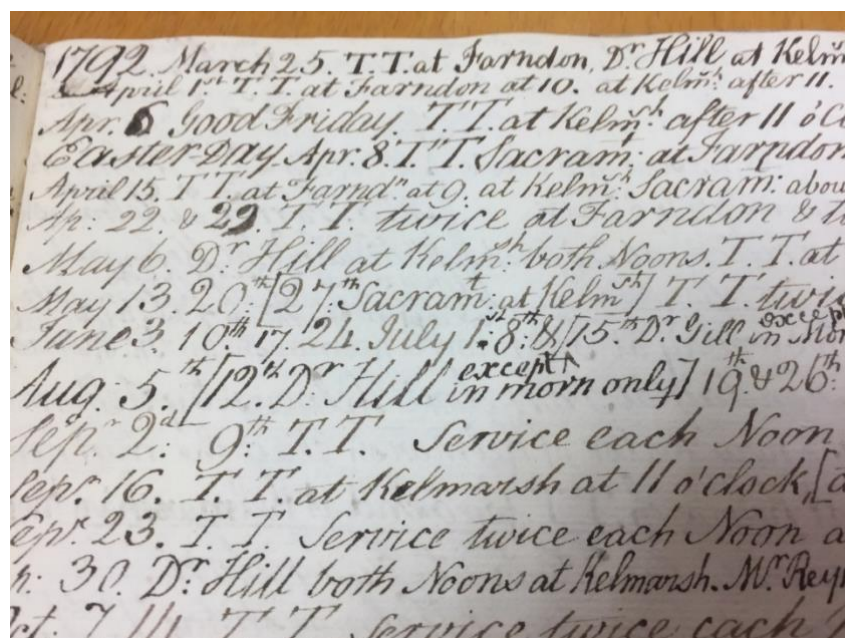 1792. March 25. T.T. at Farndon, Dr. Hill at Kelmsh
April 1st T.T. at Farndon at 10. at Kelmsh. after 11.
Apr. 6 Good Friday. T.T. at Kelmsh. after 11 o'Cl
Easter-Day Apr. 8. T.T. Sacramt. at Farndon
April 15. T T. at Farndn at 9. at Kelmsh. Sacram: abou
Ap: 22. & 29. T. T. twice at Farndon & t
May 6. Dr. Hill at Kelmsh. both Noons. T.T. at
May 13. 20th. [27th Sacramt. at Kelmsh] T. T. twic
June 3. 10th 17. 24. July 1st 8th. & [15th. Dr. Hill except in Mor
Aug. 5th. [12th. Dr. Hill except in morn only] 19th. & 26th.
Sepr. 2d: 9th: T.T. Service each Noon
Sepr. 16. T. T. at Kelmarsh at 11 o'clock, [a
Sepr. 23. T. T. Service twice each Noon a
30. Dr. Hill both Noons at Kelmarsh. Mr. Rey
Oct. 7. 14. T. T. Service twice each